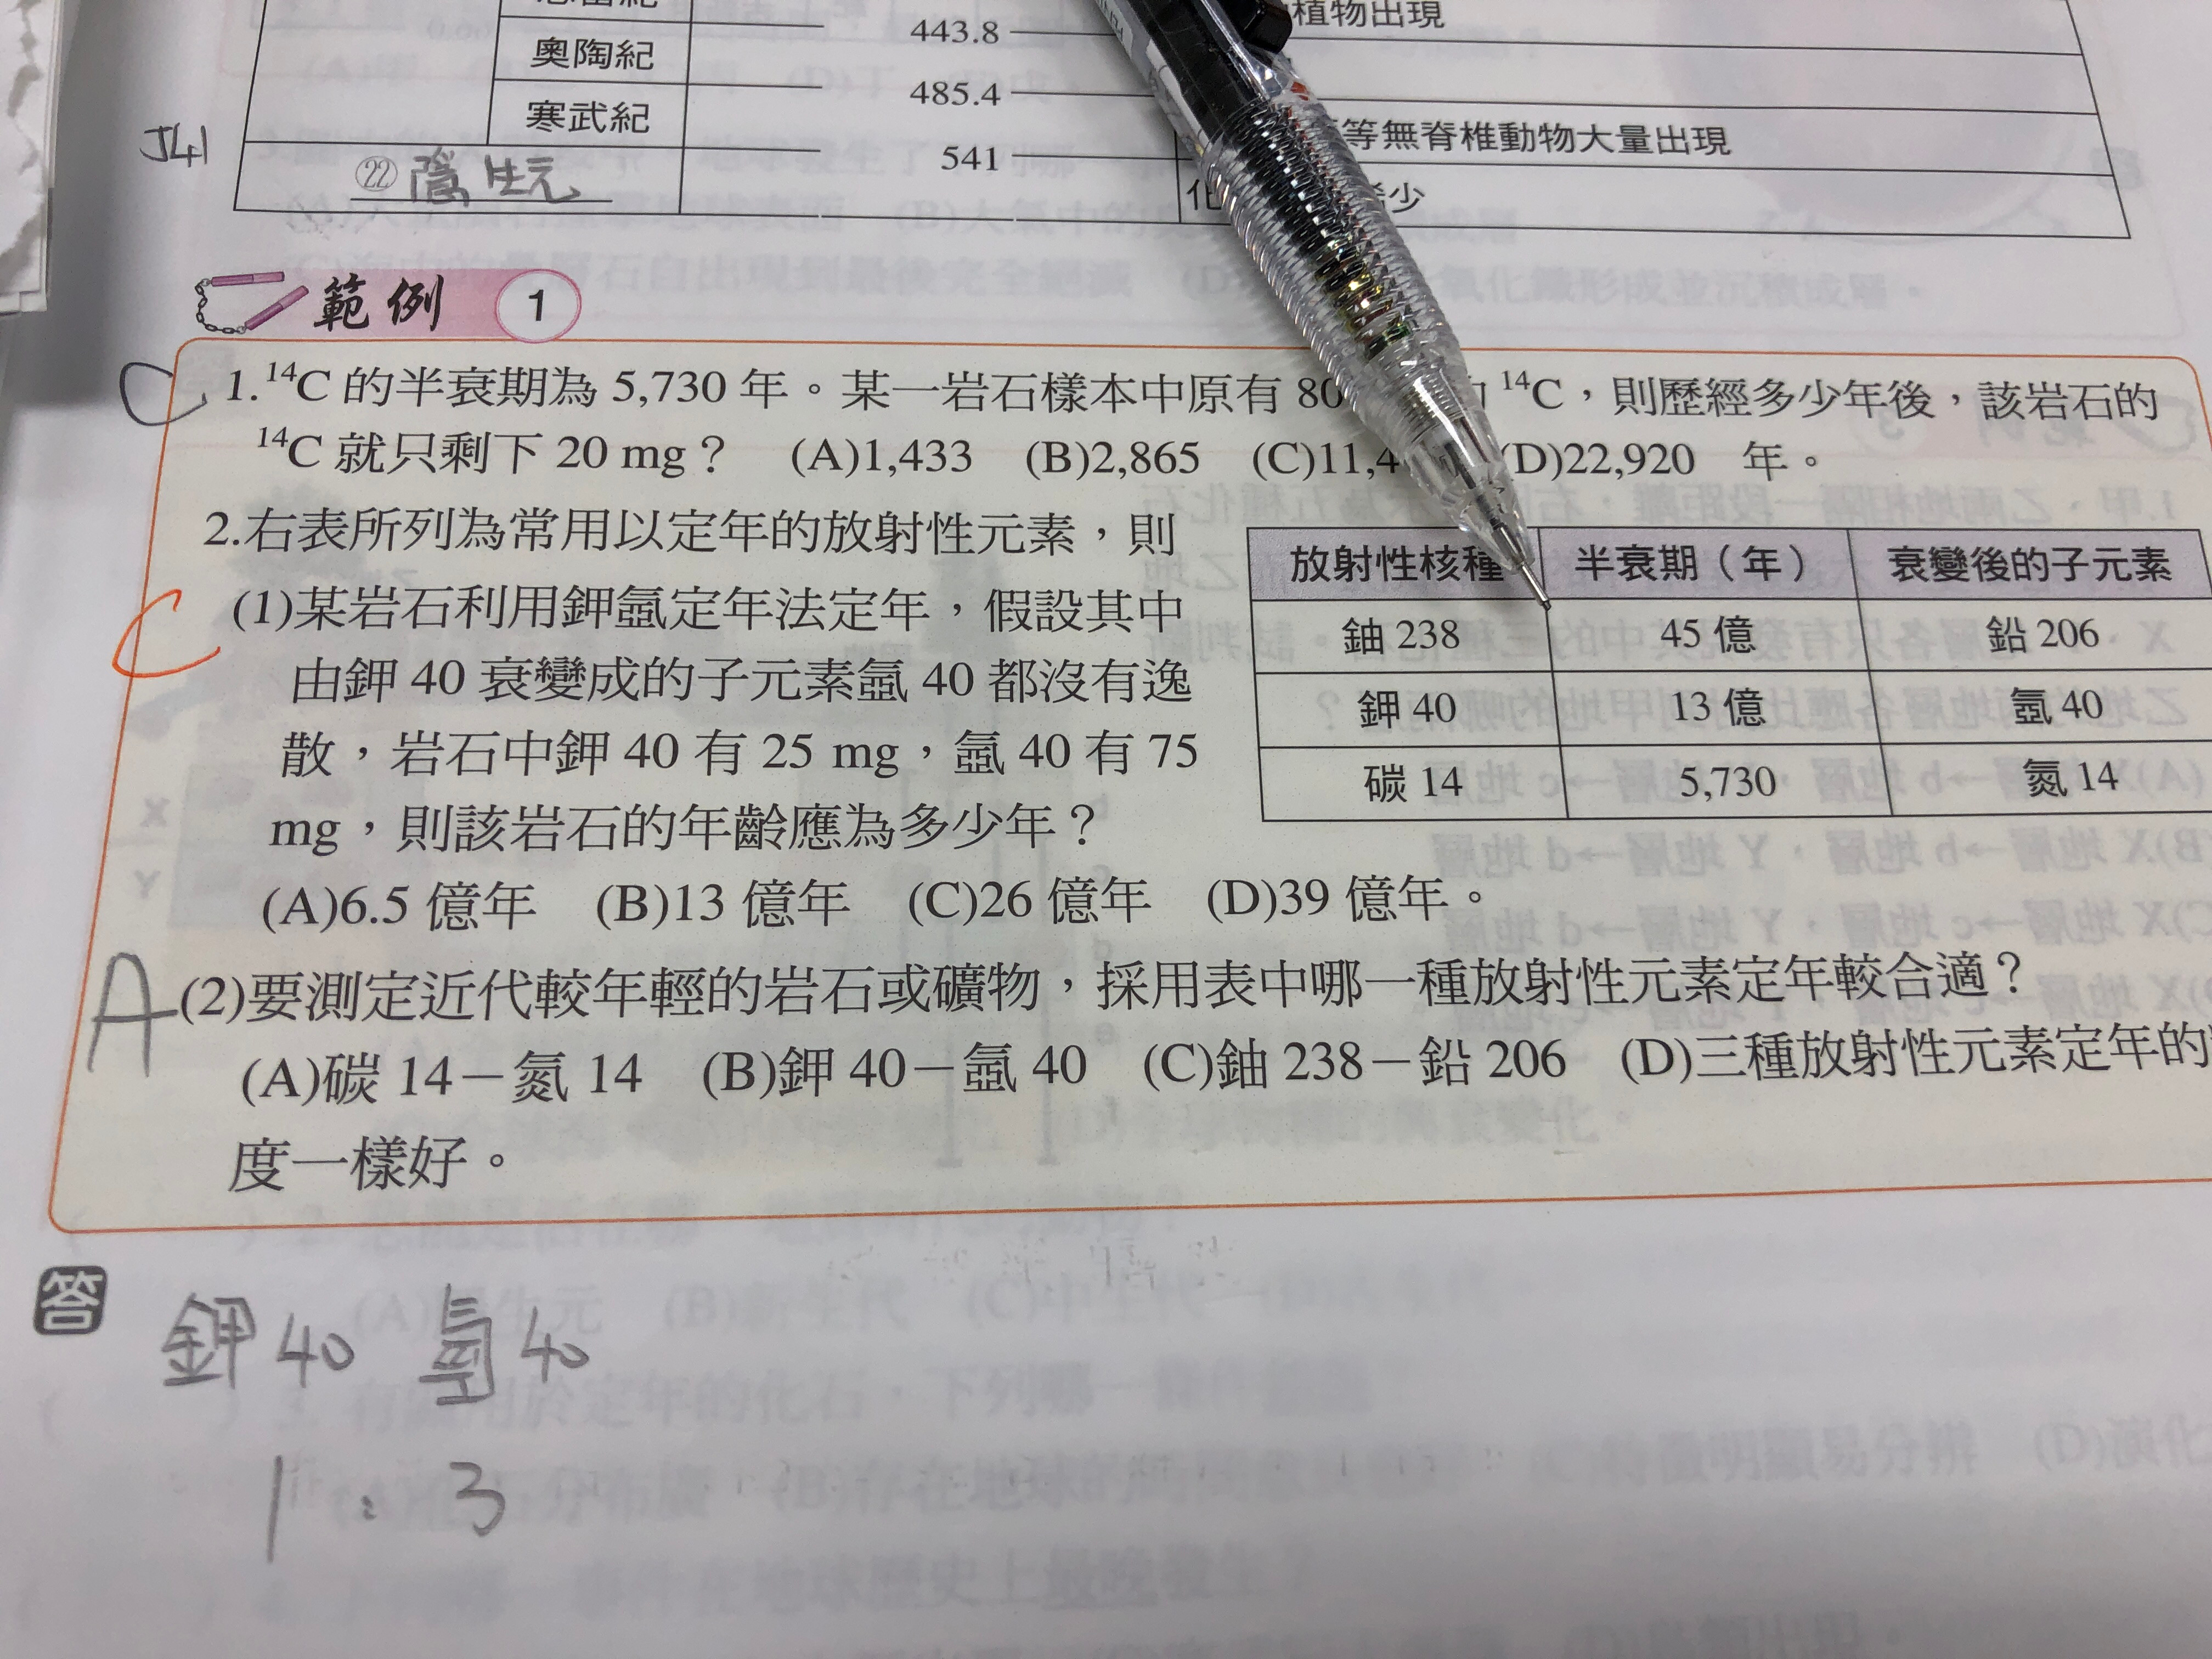 443.8
植物出現
奧陶紀
485.4
寒武紀
等無脊椎動物大量出現
541
541
㉒ 隱生元
化
少
範例 1
C 1. ¹⁴C 的半衰期為 5,730 年。某一岩石樣本中原有 80 ¹⁴C,則歷經多少年後,該岩石的
¹⁴C 就只剩下 20 mg? (A)1,433 (B)2,865 (C)11,4 (D)22,920 年。
2.右表所列為常用以定年的放射性元素,則
C (1)某岩石利用鉀氬定年法定年,假設其中
由鉀 40 衰變成的子元素氬 40 都沒有逸
散,岩石中鉀 40 有 25 mg,氬 40 有 75
mg,則該岩石的年齡應為多少年?
(A)6.5 億年 (B)13 億年 (C)26 億年 (D)39 億年。
放射性核種 半衰期(年) 衰變後的子元素
鈾 238 45 億 鉛 206
鉀 40 13 億 氬 40
碳 14 5,730 氮 14
A (2)要測定近代較年輕的岩石或礦物,採用表中哪一種放射性元素定年較合適?
(A)碳 14-氮 14 (B)鉀 40-氬 40 (C)鈾 238-鉛 206 (D)三種放射性元素定年的
度一樣好。
答
鉀 40 氬 40
1 : 3